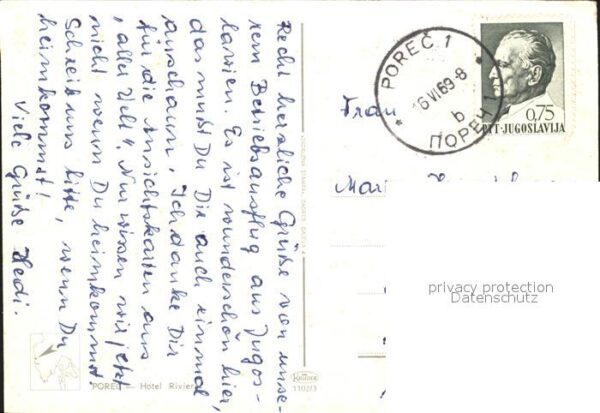 Recht herzliche Grüße von unse-
rem Betriebsausflug aus Jugos-
lawien. Es ist wunderschön hier,
das mußt Du Dir auch einmal
anschauen. Ich danke Dir
für die Ansichtskarten aus
"aller Welt". Nur wissen wir jetzt
nicht wenn Du heimkommst
Schreib uns bitte, wenn Du
heimkommst!
Viele Grüße Hedi.
POREČ — Hotel Riviera
POREČ 1
16 VI 69-8
b
ПОРЕЧ 1
0,75
PTT-JUGOSLAVIJA
Frau
privacy protection
Datenschutz
1102/3